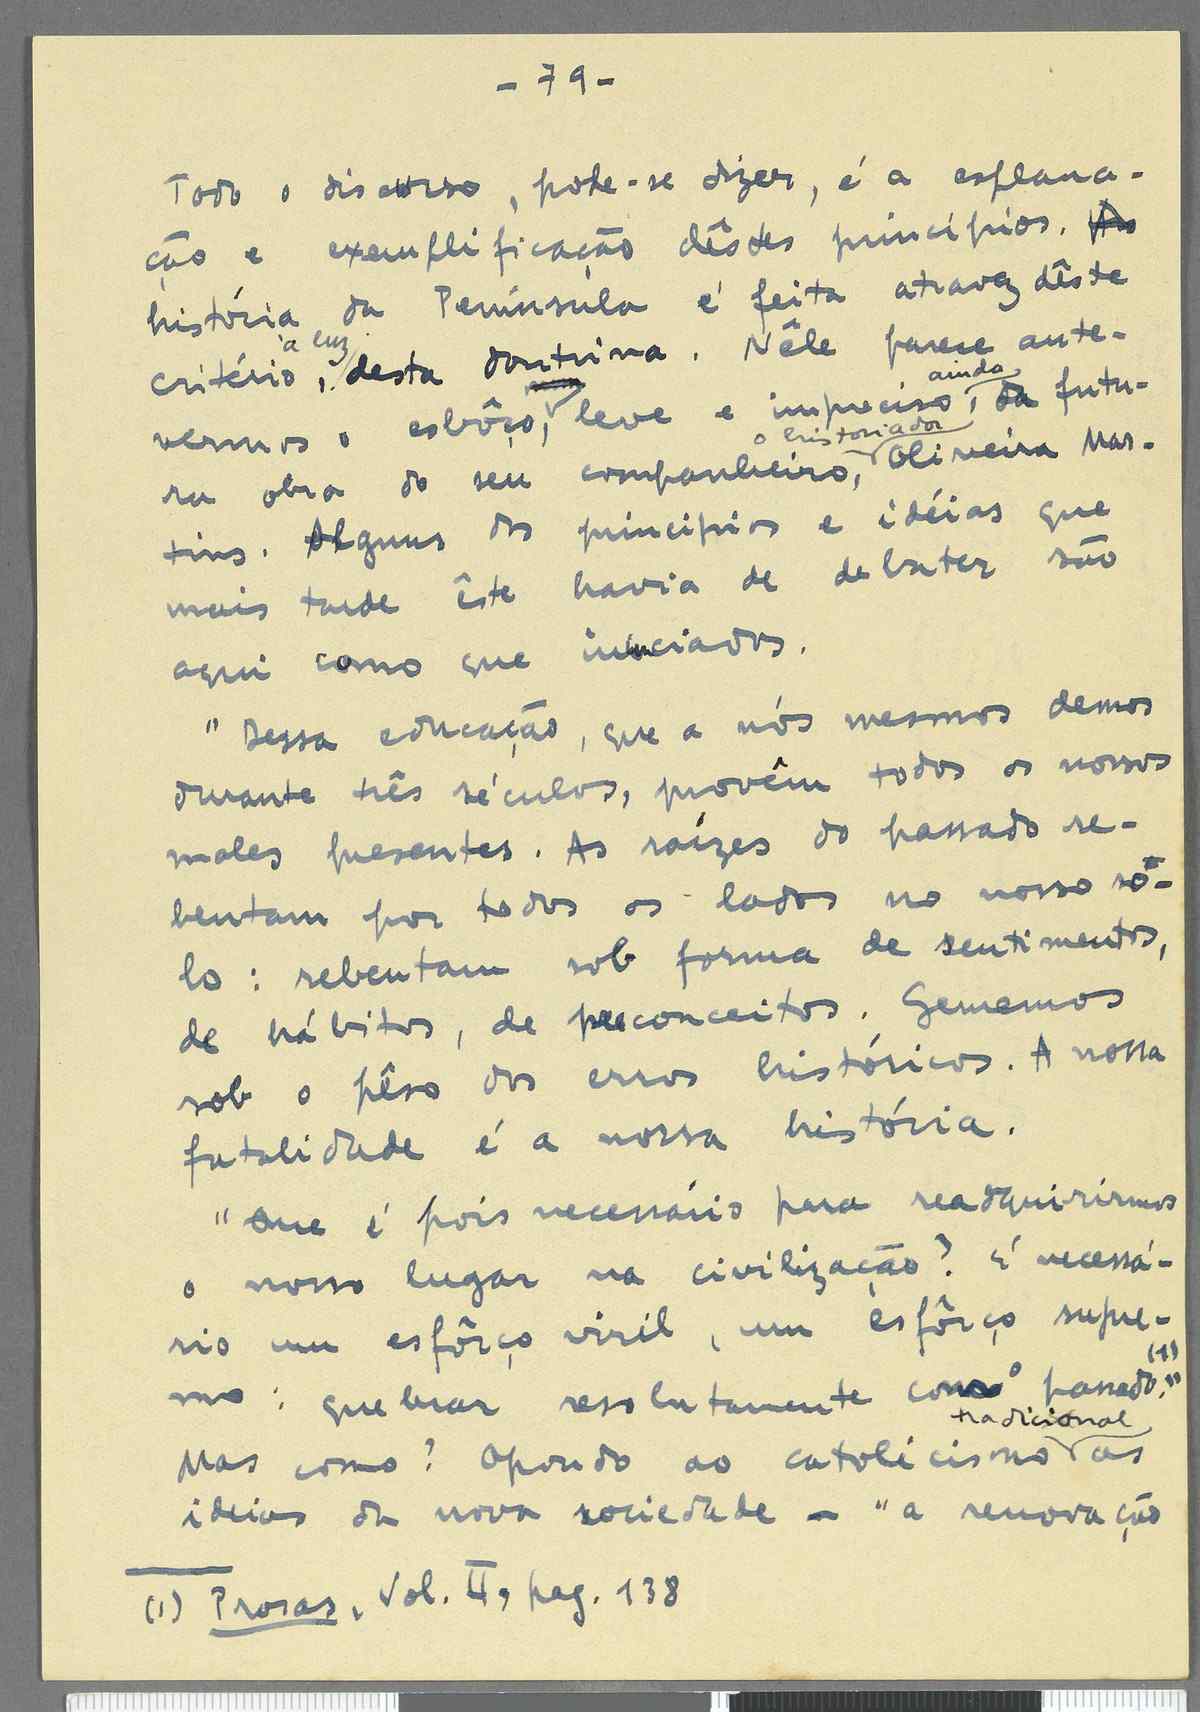 - 79 -
Todo o discurso, pode-se dizer, é a esplana-
ção e exemplificação dêstes princípios. A
história da Península é feita atravez dêste
critério, à luz desta doutrina. Nêle parece ante-
vermos o esbôço, leve e impreciso ainda, da futu-
ra obra do seu companheiro, o historiador Oliveira Mar-
tins. Alguns dos princípios e idéias que
mais tarde êste havia de debater são
aqui como que iniciados.
"Dessa educação, que a nós mesmos demos
durante três séculos, provêm todos os nossos
males presentes. As raízes do passado re-
bentam por todos os lados no nosso só-
lo: rebentam sob forma de sentimentos,
de hábitos, de preconceitos. Gememos
sob o pêso dos erros históricos. A nossa
fatalidade é a nossa história.
"Que é pois necessário para readquirirmos
o nosso lugar na civilização? É necessá-
rio um esfôrço viril, um esfôrço supre-
mo: quebrar resolutamente com o passado." (1)
Mas como? Opondo ao catolicismo tradicional as
ideias da nova sociedade - "a renovação
(1) Prosas, Vol. II, pag. 138